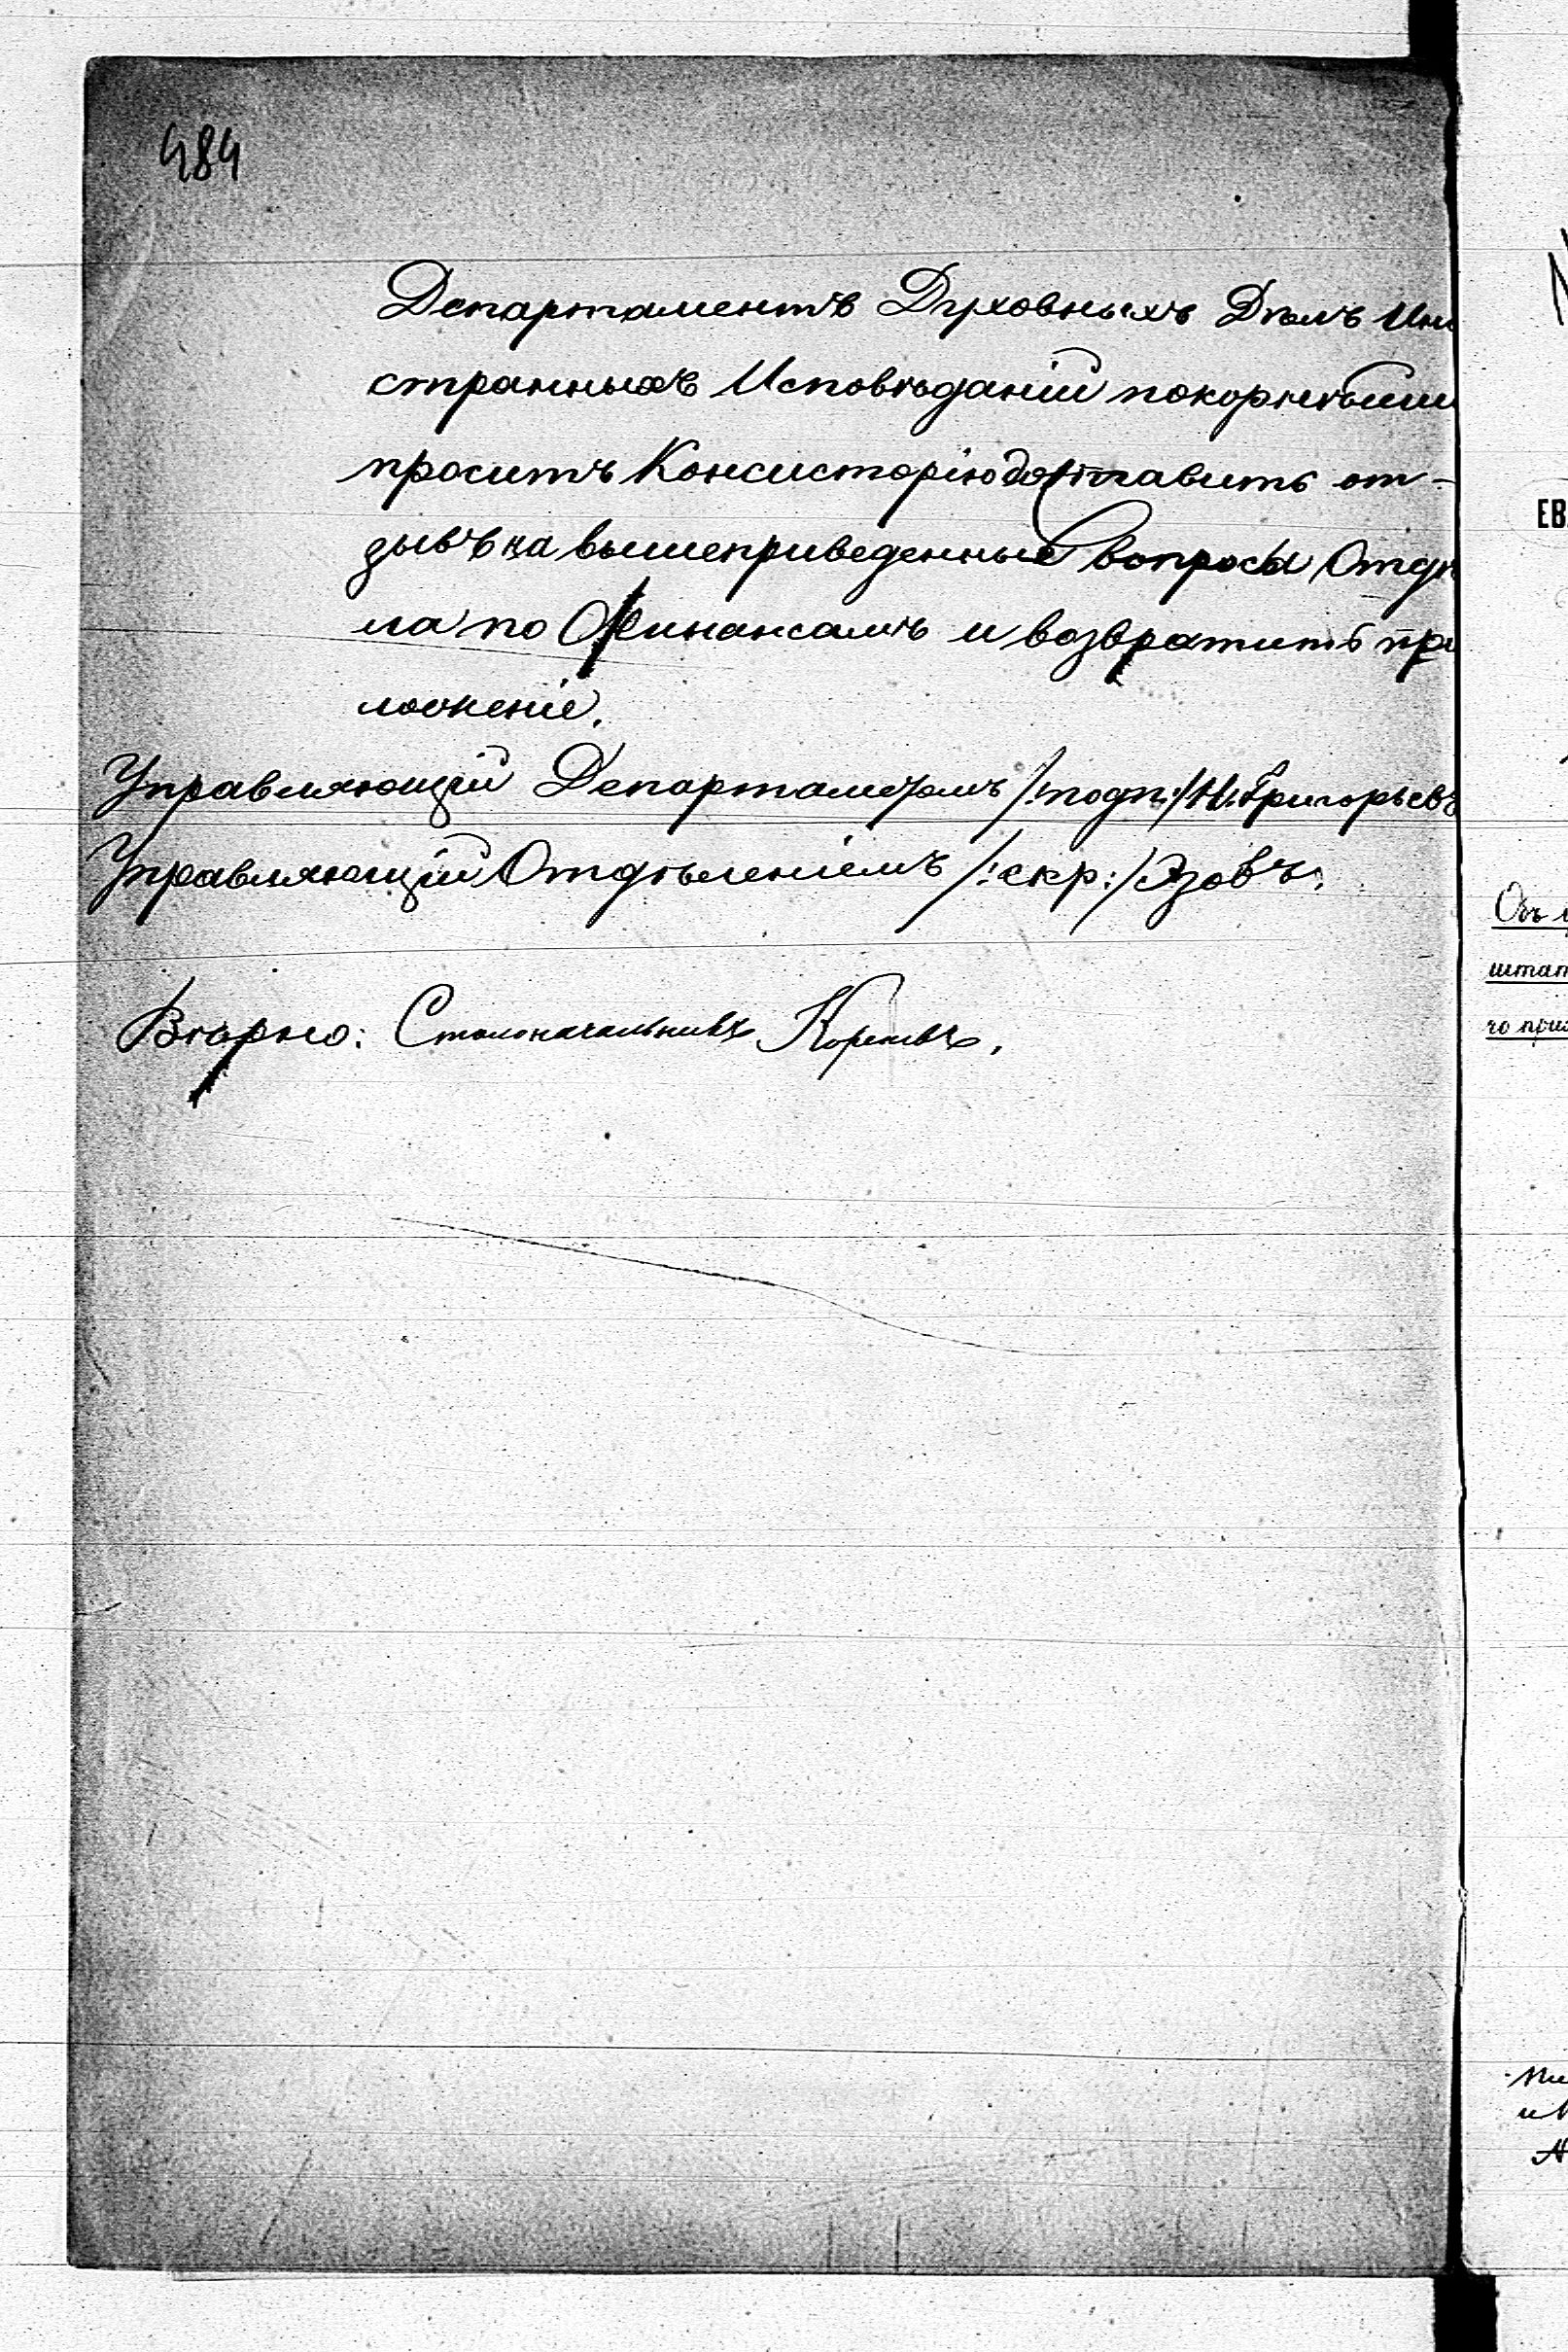 484
Департаментъ Духовныхъ Дѣлъ Ино
странныхъ Исповѣданій покорнѣйше
проситъ Консисторію доставить от-
зывъ на вышеприведенные вопросы Отдѣ
ла по Финансамъ и возвратить при
ложеніе.
Управляющій Департаментомъ /:подп:/ Н. Григорьевъ
Управляющій Отдѣленіемъ /:скр:/ Эзовъ.
Вѣрно: Столоначальникъ
ЕВ
Объ
штат
го при